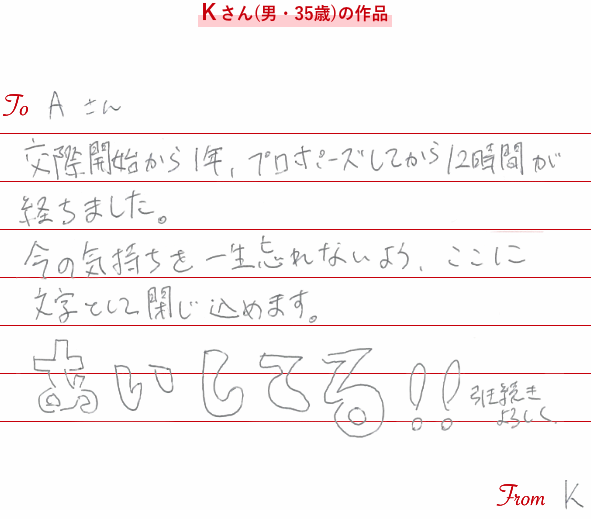 Kさん(男・35歳)の作品
To A さん
交際開始から1年、プロポーズしてから12時間が
経ちました。
今の気持ちを一生忘れないよう、ここに
文字として閉じ込めます。
あいしてる!!
引き続き
よろしく
From K